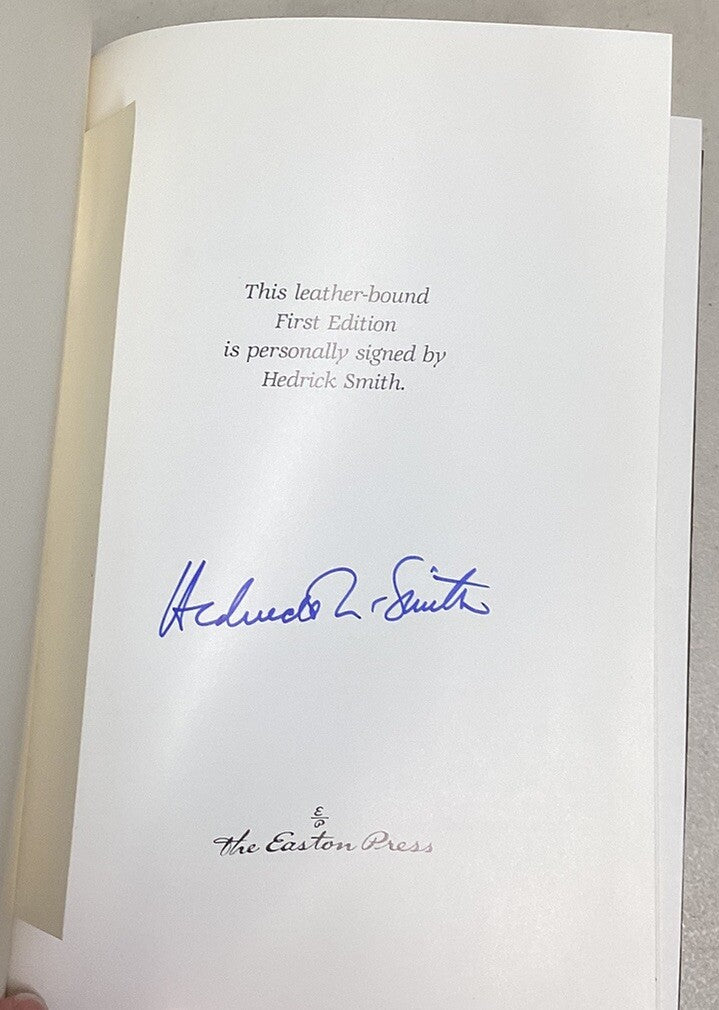 This leather-bound
First Edition
is personally signed by
Hedrick Smith.
Hedrick Smith
E
P
the Easton Press